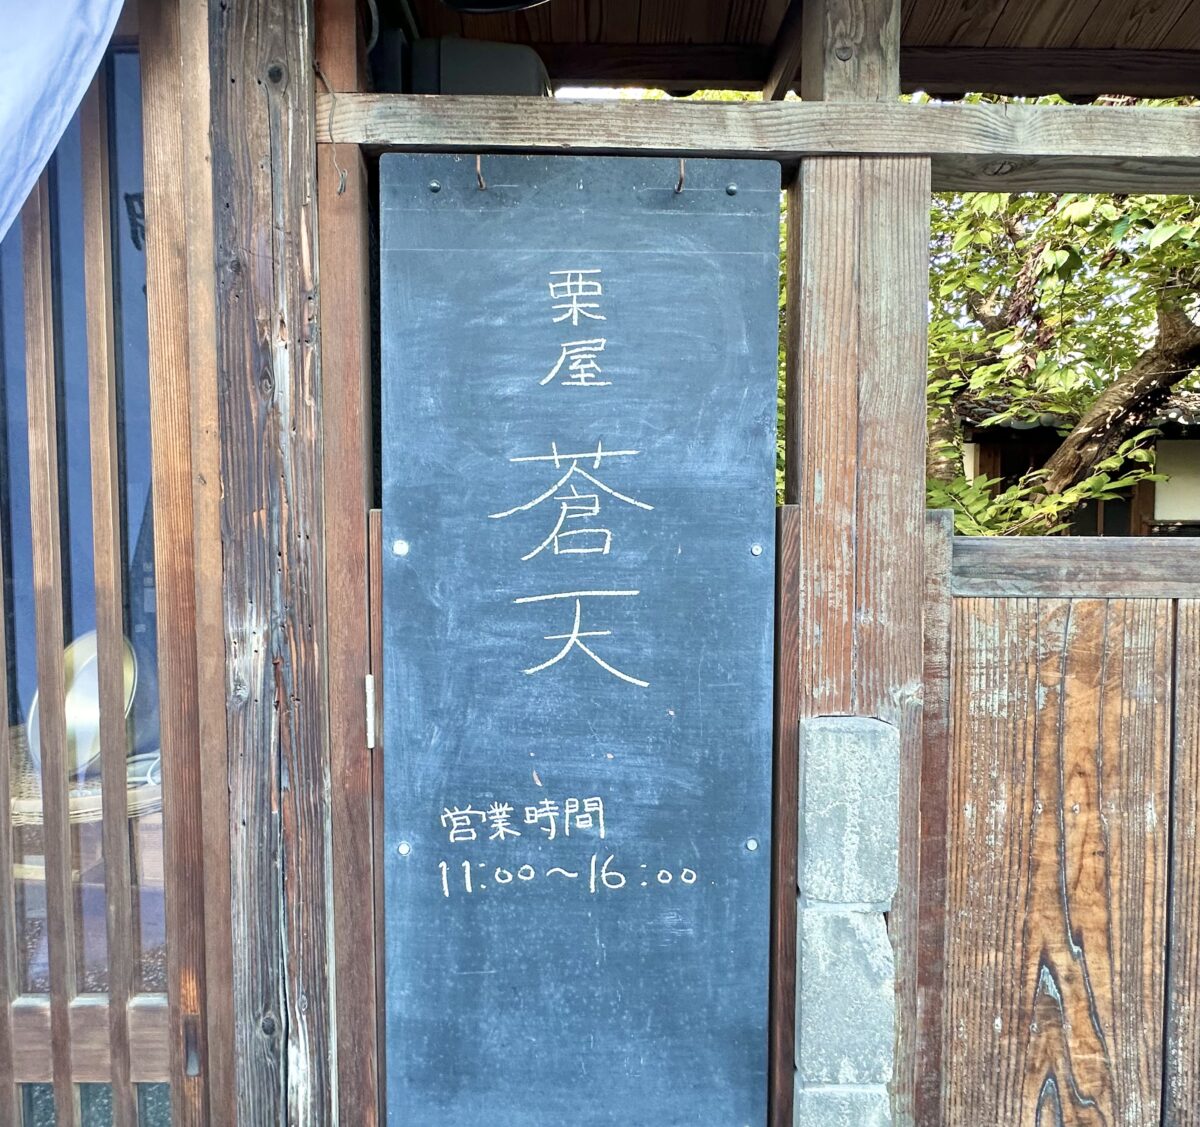 栗屋
蒼天
営業時間
11:00～16:00